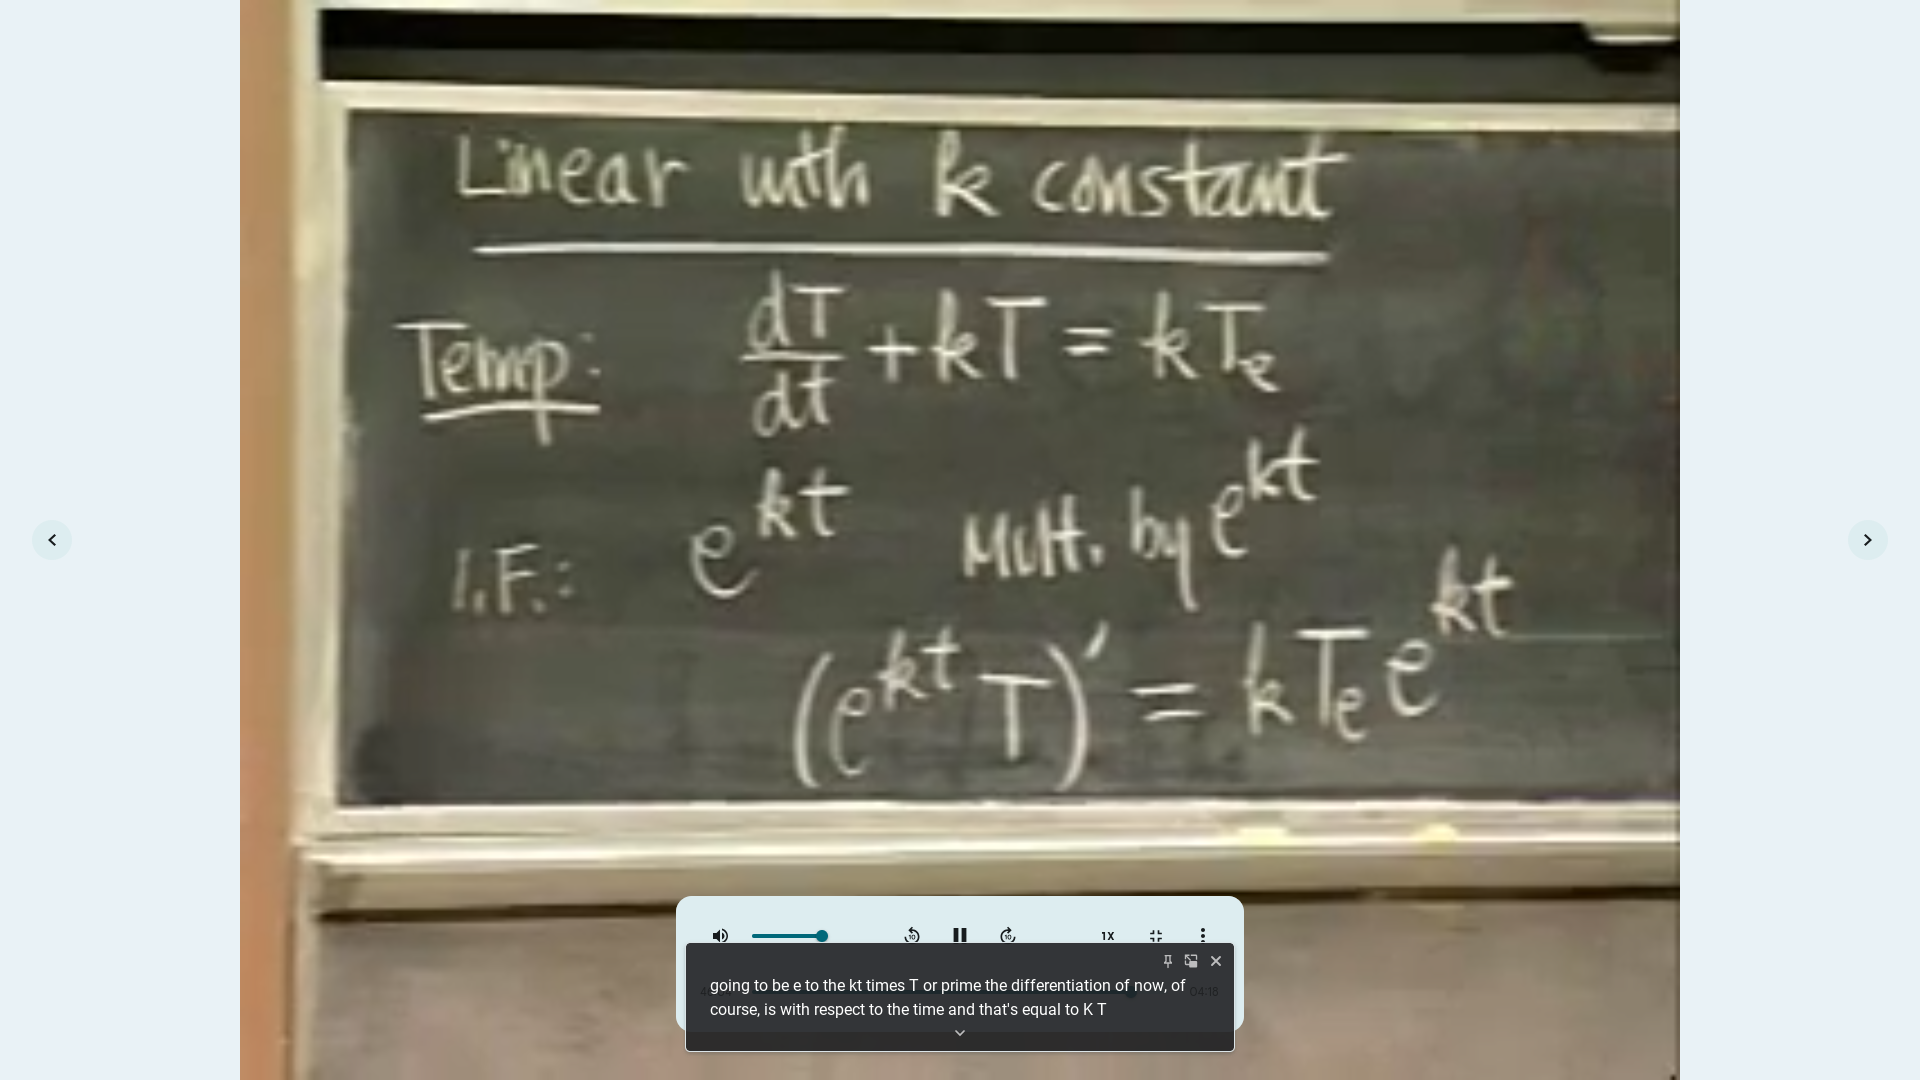 Linear with k constant
Temp: dT/dt + kT = kTe
I.F.: e^kt Mult. by e^kt
(e^kt T)' = kTe e^kt
10 10 1X
04:18
going to be e to the kt times T or prime the differentiation of now, of
course, is with respect to the time and that's equal to K T